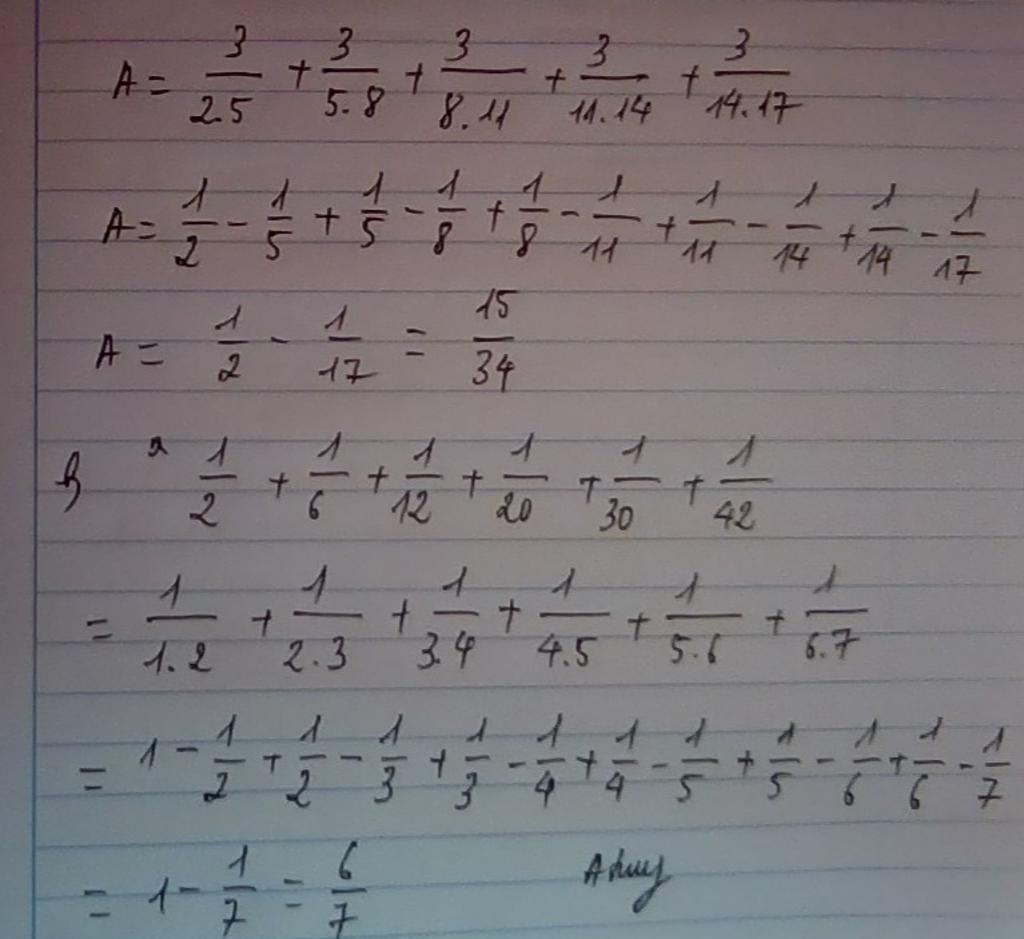 A = 3/2.5 + 3/5.8 + 3/8.11 + 3/11.14 + 3/14.17
A = 1/2 - 1/5 + 1/5 - 1/8 + 1/8 - 1/11 + 1/11 - 1/14 + 1/14 - 1/17
A = 1/2 - 1/17 = 15/34
1/2 + 1/6 + 1/12 + 1/20 + 1/30 + 1/42
= 1/1.2 + 1/2.3 + 1/3.4 + 1/4.5 + 1/5.6 + 1/6.7
= 1 - 1/2 + 1/2 - 1/3 + 1/3 - 1/4 + 1/4 - 1/5 + 1/5 - 1/6 + 1/6 - 1/7
= 1 - 1/7 = 6/7